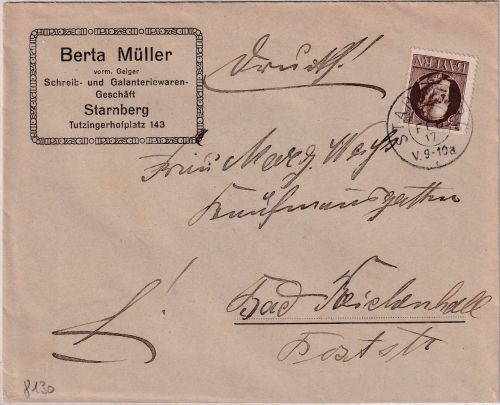 Berta Müller
vorm. Geiger
Schreib- und Galanteriewaren-
Geschäft
Starnberg
Tutzingerhofplatz 143
Druck!
BAYERN
STA
17
V. 9-10a
Frau Marg. Weiß
Kaufmannsgattin
Bad Reichenhall
Poststr
8130